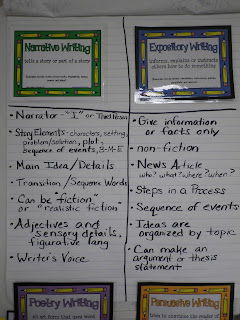 Narrative Writing
tells a story or part of a story
Expository Writing
informs, explains or instructs
others how to do something
• Narrator - "I" or Third Person
• Story Elements - characters, setting,
problem/solution, plot,
sequence of events, B-M-E
• Main Idea/Details
• Transition / Sequence Words
• Can be fiction
or "realistic fiction"
• Adjectives and
sensory details,
figurative lang
• Writer's Voice
• Give information
or facts only
• non-fiction
• News Article
who? what? where? when?
• Steps in a Process
• Sequence of events
• Ideas are
organized by topic
• Can make an
argument or thesis
statement
Poetry Writing
Persuasive Writing